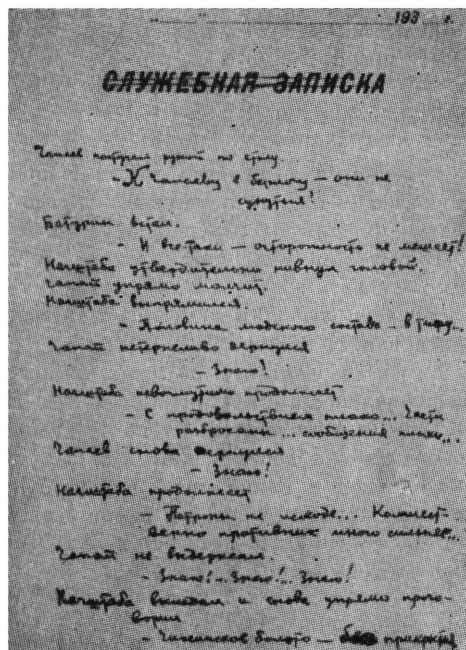 193 г.
СЛУЖЕБНАЯ ЗАПИСКА
Чапаев рукой по столу.
- К Чапаеву в они не
сунутся!
Батурин встал.
- И все таки — осторожность не мешает!
Начштаба утвердительно кивнул головой.
Чапай упрямо молчит.
Начштаба выпрямился.
- Половина людского состава - в тифу...
Чапай нетерпеливо дернулся
- Знаю!
Начштаба невозмутимо продолжает
- С продовольствием плохо... Части
разбросаны... сообщения плохи...
Чапаев снова дернулся
- Знаю!
Начштаба продолжает
- Патроны на исходе... Количест-
венно противник много сильнее...
Чапай не выдержал.
- Знаю!.. Знаю!.. Знаю!
Начштаба и снова упрямо прого-
ворил
- болото —